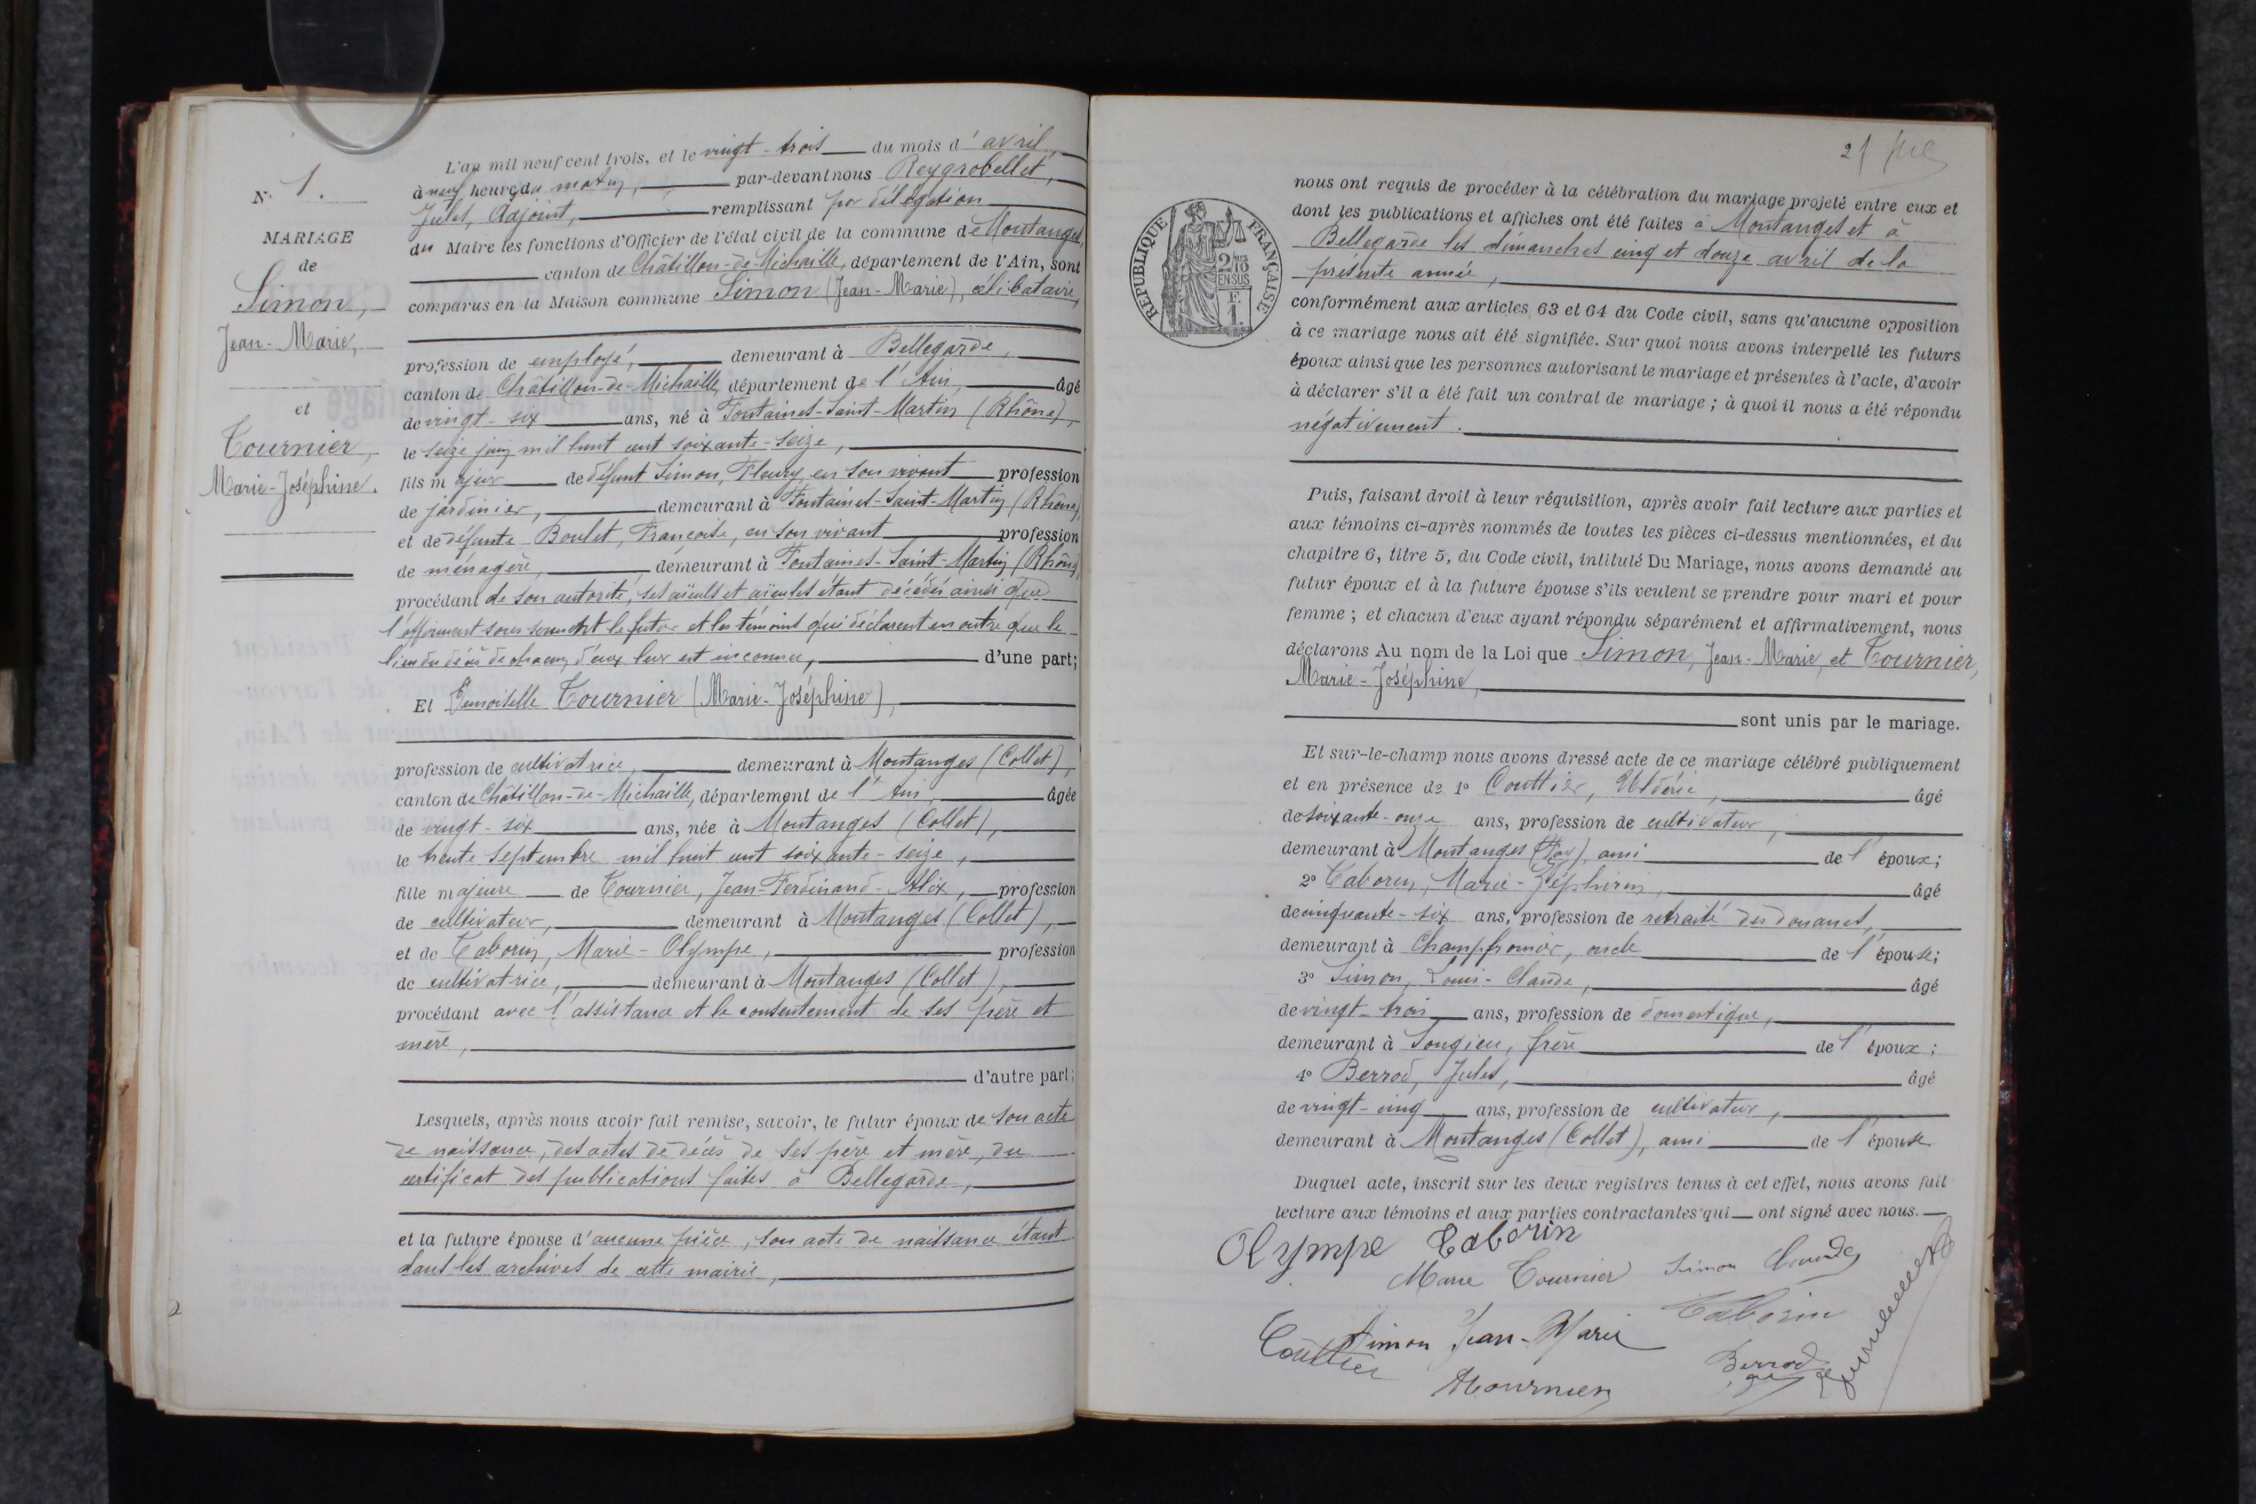 N° 1.
MARIAGE
de
Simon,
Jean-Marie,
et
Tournier,
Marie-Joséphine.
L'an mil neuf cent trois, et le vingt-trois du mois d'avril,
à neuf heures du matin, par-devant nous Reygrobellet,
Jules, Adjoint, remplissant par délégation
du Maire les fonctions d'Officier de l'état civil de la commune de Montanges,
canton de Châtillon-de-Michaille, département de l'Ain, sont
comparus en la Maison commune Simon (Jean-Marie), célibataire,
profession de employé, demeurant à Bellegarde,
canton de Châtillon-de-Michaille, département de l'Ain, âgé
de vingt-six ans, né à Fontaines-Saint-Martin (Rhône),
le seize juin mil huit cent soixante-seize,
fils majeur de défunt Simon, Fleury, en son vivant profession
de jardinier, demeurant à Fontaines-Saint-Martin (Rhône),
et de défunte Boulet, Françoise, en son vivant profession
de ménagère, demeurant à Fontaines-Saint-Martin (Rhône),
procédant de son autorité, ses aïeuls et aïeules étant décédés ainsi que
l'affirment sous serment le futur et les témoins qui déclarent en outre que le
lieu du décès de chacun d'eux leur est inconnu, d'une part;
Et Demoiselle Tournier (Marie-Joséphine),
profession de cultivatrice, demeurant à Montanges (Collet),
canton de Châtillon-de-Michaille, département de l'Ain, âgée
de vingt-six ans, née à Montanges (Collet),
le trente septembre mil huit cent soixante-seize,
fille majeure de Tournier, Jean-Ferdinand-Alix, profession
de cultivateur, demeurant à Montanges (Collet),
et de Taborin, Marie-Olympe, profession
de cultivatrice, demeurant à Montanges (Collet),
procédant avec l'assistance et le consentement de ses père et
mère,
d'autre part;
Lesquels, après nous avoir fait remise, savoir, le futur époux de son acte
de naissance, des actes de décès de ses père et mère, du
certificat des publications faites à Bellegarde,
et la future épouse d'aucune pièce, son acte de naissance étant
dans les archives de cette mairie,
2
REPUBLIQUE FRANÇAISE
2/10
EN SUS
F.
1.
nous ont requis de procéder à la célébration du mariage projeté entre eux et
dont les publications et affiches ont été faites à Montanges et à
Bellegarde les dimanches cinq et douze avril de la
présente année,
conformément aux articles 63 et 64 du Code civil, sans qu'aucune opposition
à ce mariage nous ait été signifiée. Sur quoi nous avons interpellé les futurs
époux ainsi que les personnes autorisant le mariage et présentes à l'acte, d'avoir
à déclarer s'il a été fait un contrat de mariage; à quoi il nous a été répondu
négativement.
Puis, faisant droit à leur réquisition, après avoir fait lecture aux parties et
aux témoins ci-après nommés de toutes les pièces ci-dessus mentionnées, et du
chapitre 6, titre 5, du Code civil, intitulé Du Mariage, nous avons demandé au
futur époux et à la future épouse s'ils veulent se prendre pour mari et pour
femme; et chacun d'eux ayant répondu séparément et affirmativement, nous
déclarons Au nom de la Loi que Simon, Jean-Marie, et Tournier,
Marie-Joséphine,
sont unis par le mariage.
Et sur-le-champ nous avons dressé acte de ce mariage célébré publiquement
et en présence de 1° Couttier, âgé
de soixante-onze ans, profession de cultivateur,
demeurant à Montanges ami de l'époux;
2° Taborin, Marie-Zéphirin, âgé
de cinquante-six ans, profession de retraité des douanes,
demeurant à Champfromier, oncle de l'épouse;
3° Simon, Louis-Claude, âgé
de vingt-trois ans, profession de domestique,
demeurant à Songieu, frère de l'époux;
4° Berrod, Jules, âgé
de vingt-cinq ans, profession de cultivateur,
demeurant à Montanges (Collet), ami de l'épouse
Duquel acte, inscrit sur les deux registres tenus à cet effet, nous avons fait
lecture aux témoins et aux parties contractantes qui ont signé avec nous.
Olympe Taborin
Marie Tournier Simon Claude
Taborin
Simon Jean-Marie
Couttier
Berrod
ATournier